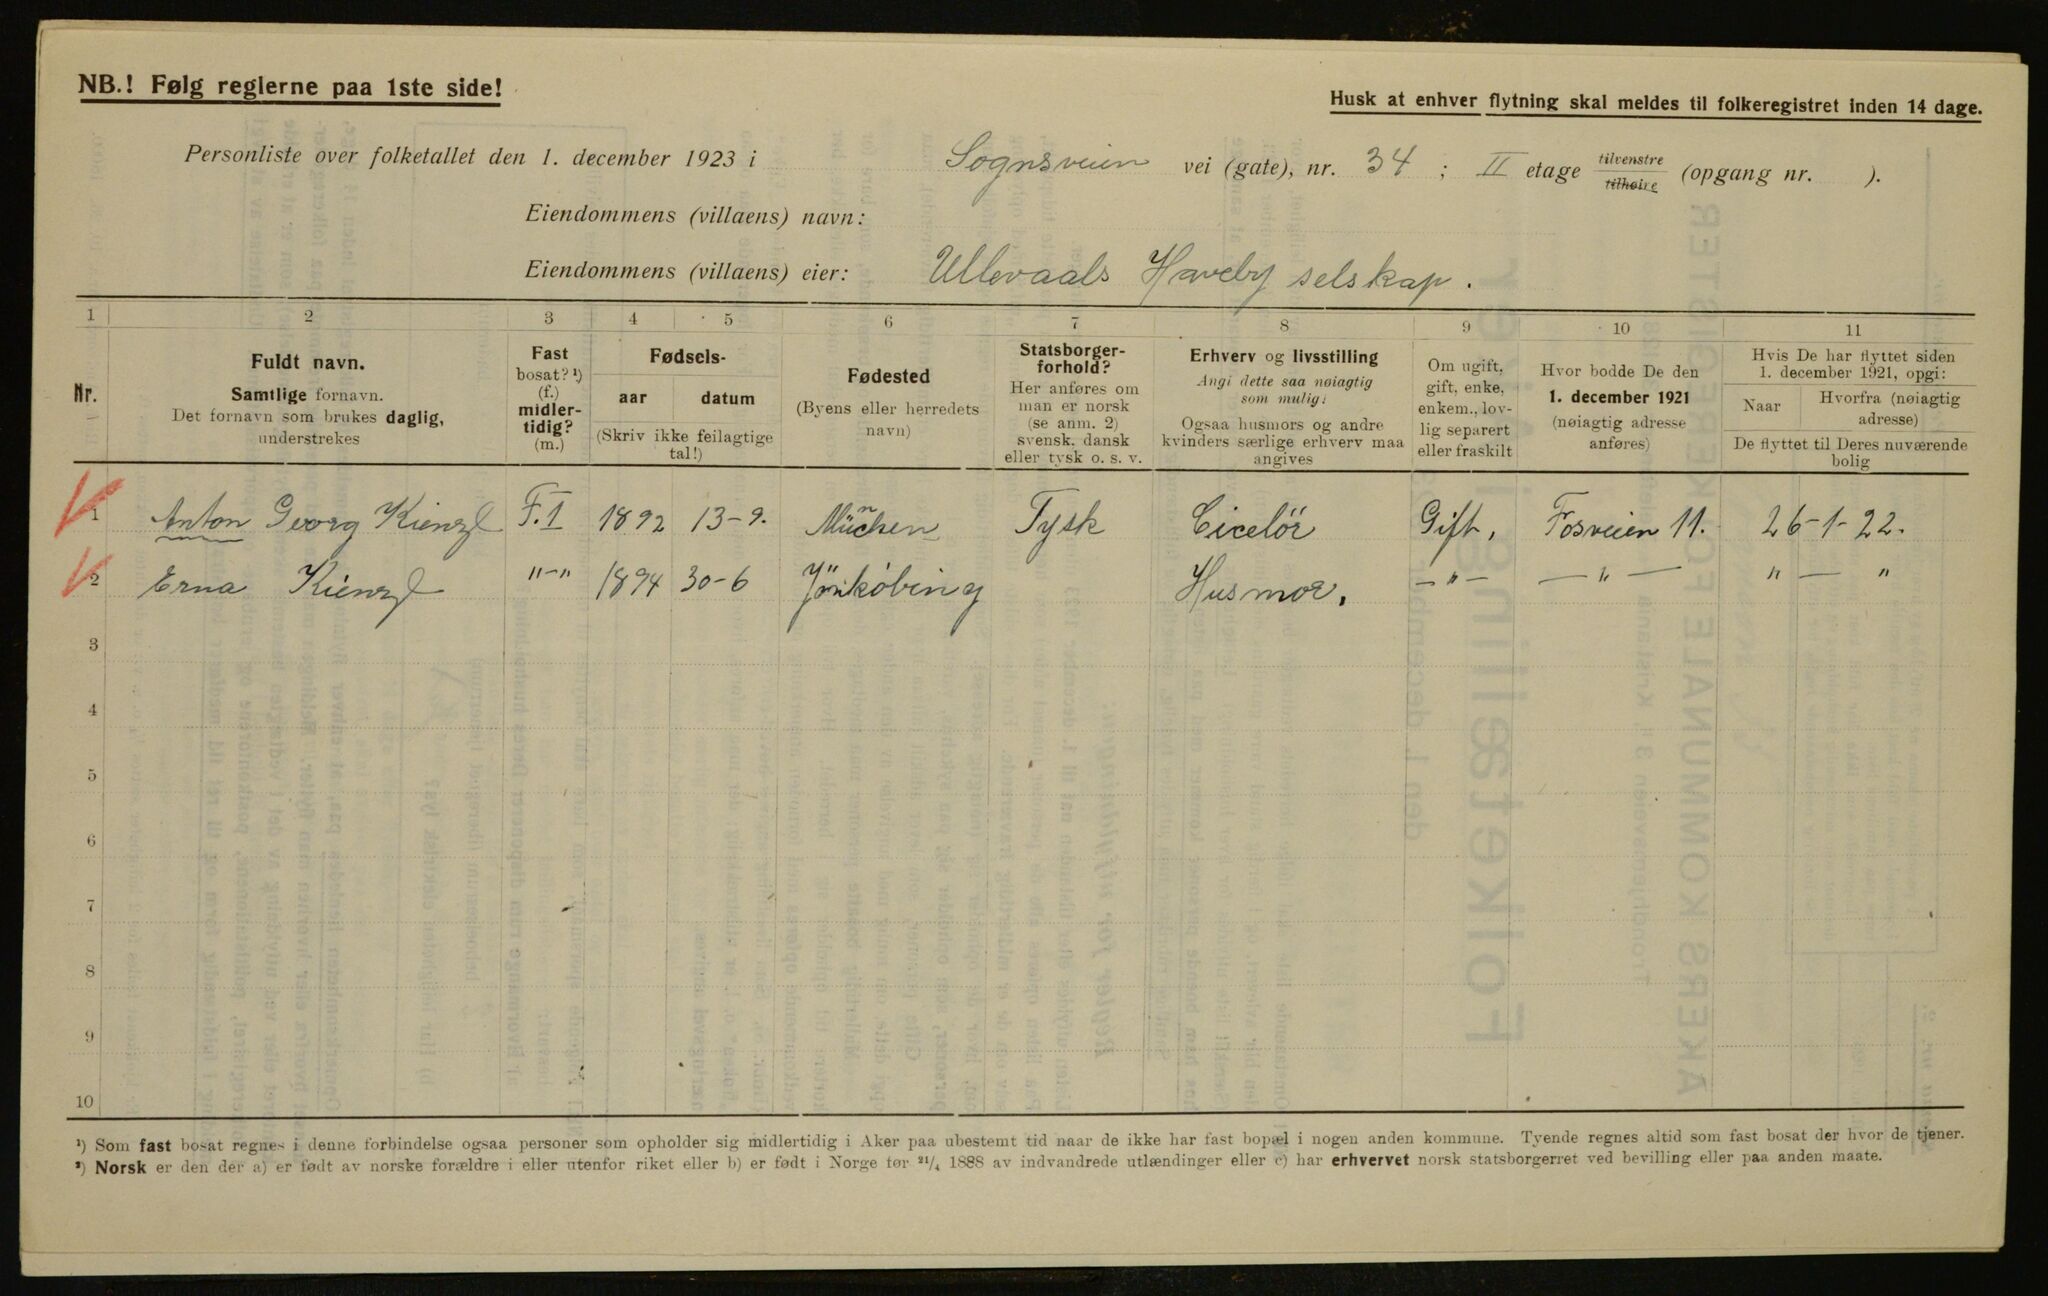 NB.! Følg reglerne paa 1ste side!
Husk at enhver flytning skal meldes til folkeregistret inden 14 dage.
Personliste over folketallet den 1. december 1923 i Sognsveien vei (gate), nr. 34 ; II etage tilvenstre tilhøire (opgang nr. ).
Eiendommens (villaens) navn:
Eiendommens (villaens) eier: Ullevaals Haveby selskap.
1 2 3 4 5 6 7 8 9 10 11
Nr.
Fuldt navn.
Samtlige fornavn.
Det fornavn som brukes daglig,
understrekes
Fast
bosat? ¹)
(f.)
midler-
tidig?
(m.)
Fødsels-
aar datum
(Skriv ikke feilagtige
tal!)
Fødested
(Byens eller herredets
navn)
Statsborger-
forhold?
Her anføres om
man er norsk
(se anm. 2)
svensk, dansk
eller tysk o. s. v.
Erhverv og livsstilling
Angi dette saa nøiagtig
som mulig:
Ogsaa husmors og andre
kvinders særlige erhverv maa
angives
Om ugift,
gift, enke,
enkem., lov-
lig separert
eller fraskilt
Hvor bodde De den
1. december 1921
(nøiagtig adresse
anføres)
Hvis De har flyttet siden
1. december 1921, opgi:
Naar
Hvorfra (nøiagtig
adresse)
De flyttet til Deres nuværende
bolig
1 Anton Georg Kienzl F. 1 1892 13-9. München Tysk Ciselør Gift, Fosveien 11. 26-1-22.
2 Erna Kienzl "-" 1894 30-6 Jönköbing Husmor, -"- -"- " - "
3
4
5
6
7
8
9
10
¹) Som fast bosat regnes i denne forbindelse ogsaa personer som opholder sig midlertidig i Aker paa ubestemt tid naar de ikke har fast bopæl i nogen anden kommune. Tyende regnes altid som fast bosat der hvor de tjener.
²) Norsk er den der a) er født av norske forældre i eller utenfor riket eller b) er født i Norge før 21/4 1888 av indvandrede utlændinger eller c) har erhvervet norsk statsborgerret ved bevilling eller paa anden maate.